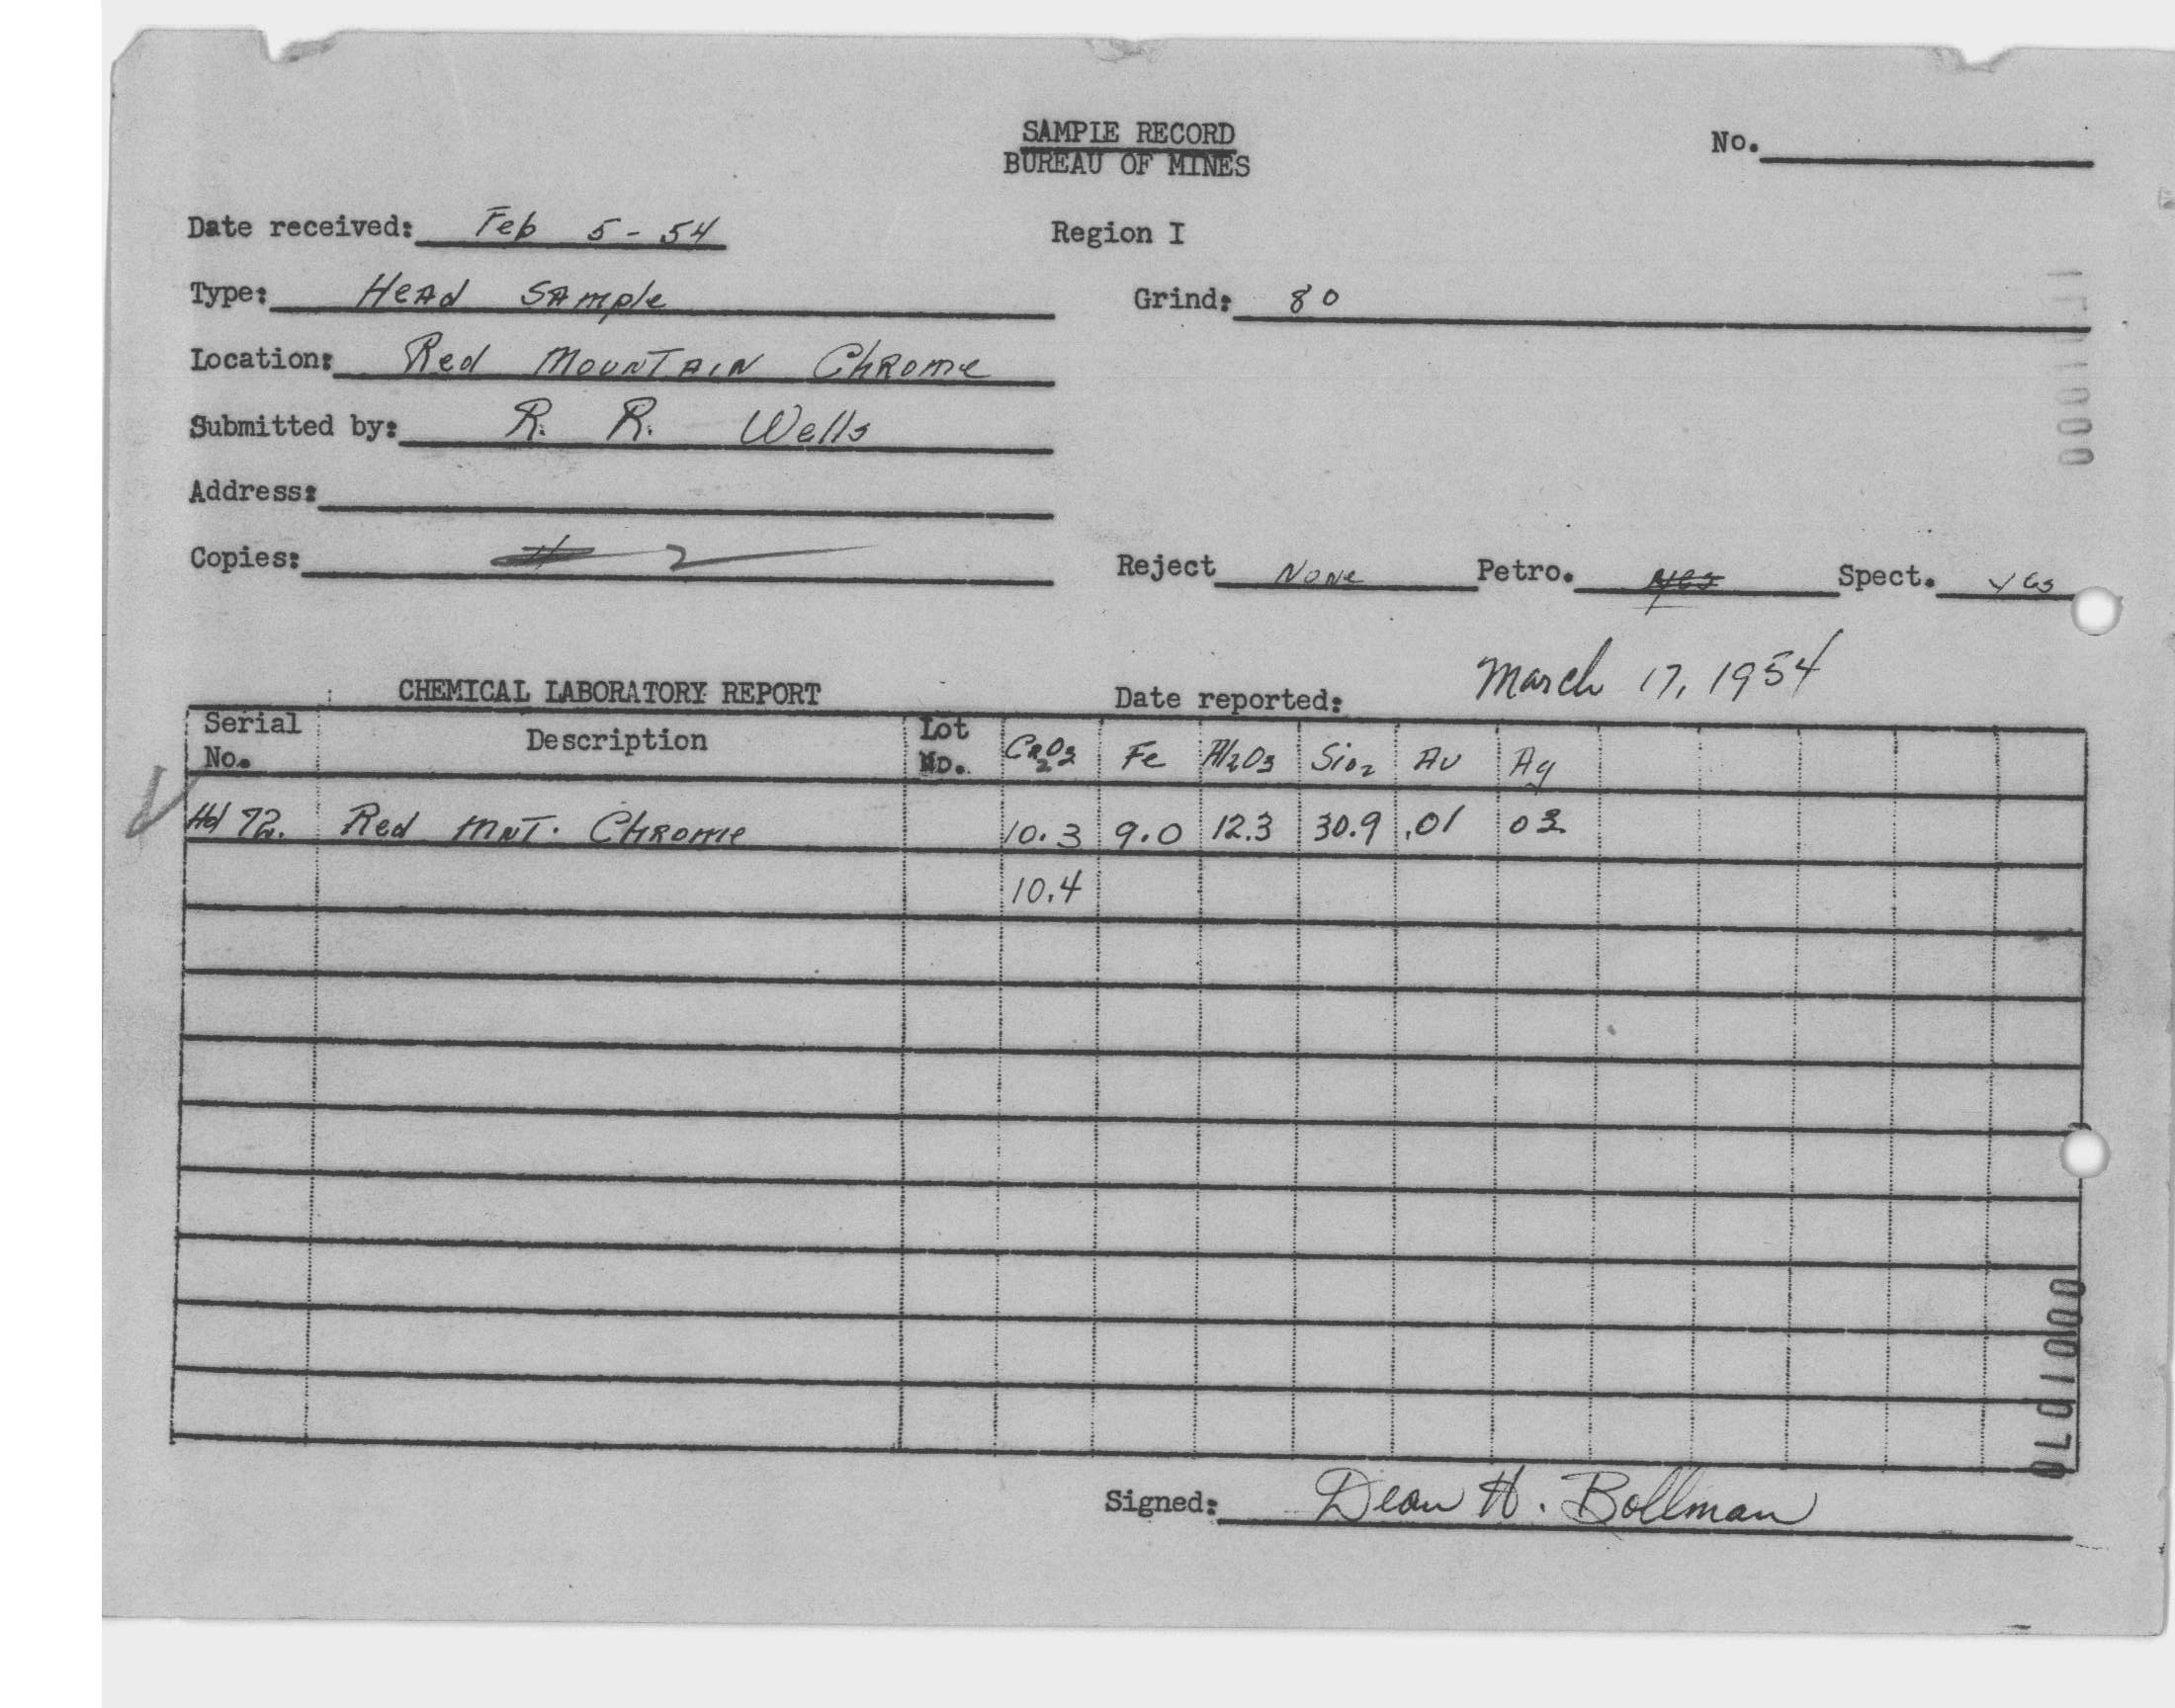 SAMPLE RECORD
BUREAU OF MINES
No.
Date received: Feb 5 - 54
Region I
Type: Head Sample
Grind: 80
Location: Red Mountain Chrome
Submitted by: R. R. Wells
Address:
Copies: 2
Reject None Petro. yes Spect. yes
CHEMICAL LABORATORY REPORT
Date reported: March 17, 1954
Serial No. Description Lot No. Cr2O3 Fe Al2O3 SiO2 Au Ag
Hd 72. Red MNT. Chrome 10.3 9.0 12.3 30.9 .01 03
10.4
Signed: Dean H. Bollman